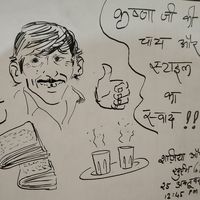 कृष्णा जी की
चाय और
स्टाइल
का
स्वाद !!
शज़िया और
25 अक्टूबर
12:45 PM